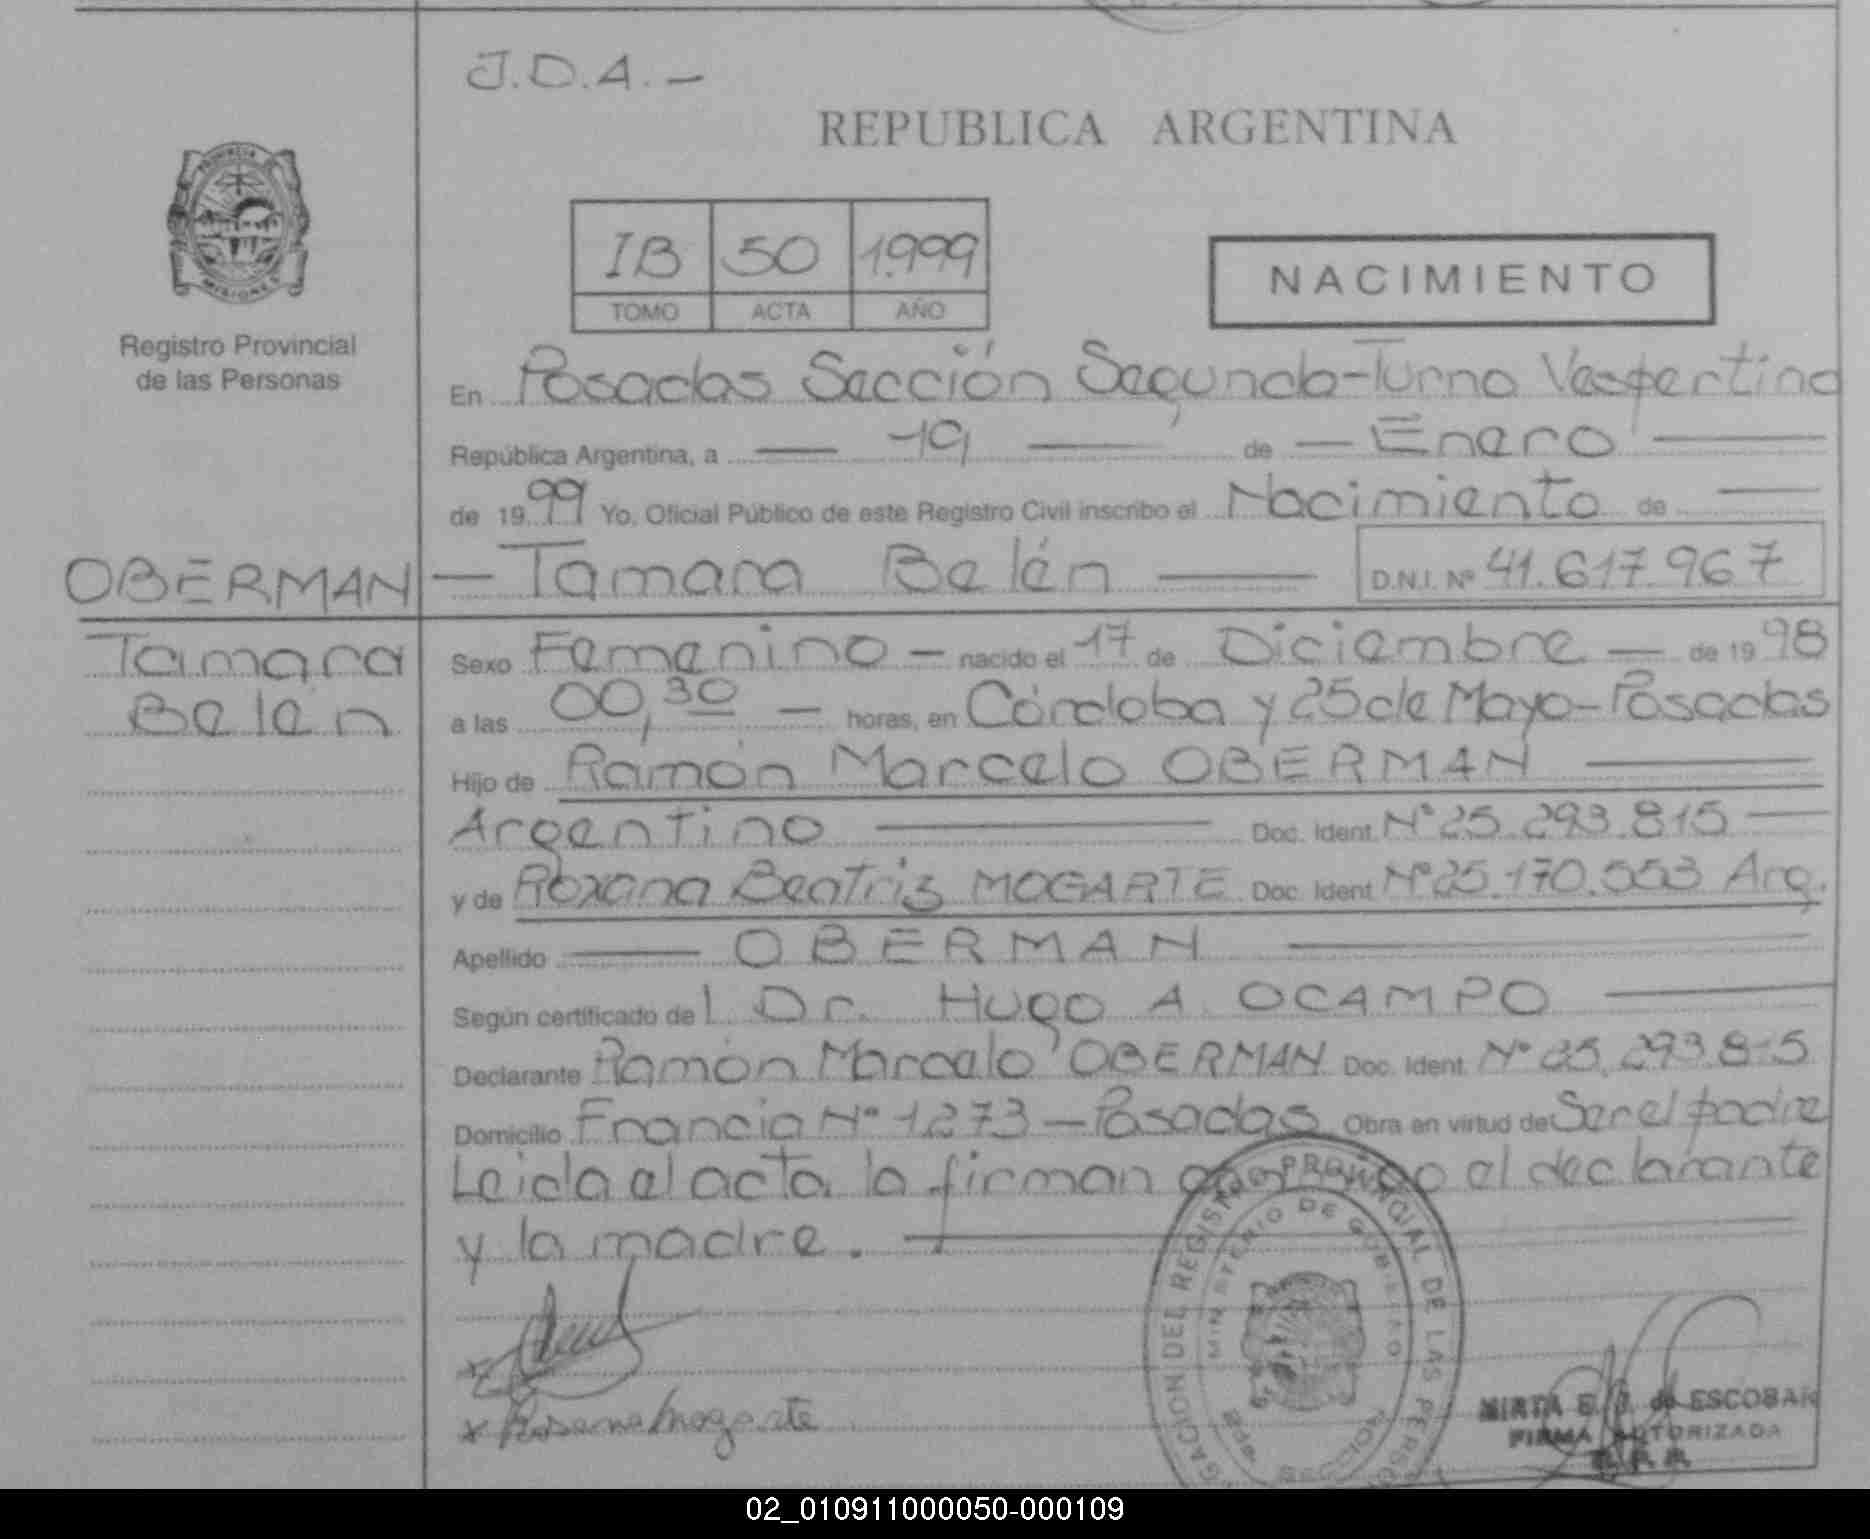 J.D.A. -
REPUBLICA ARGENTINA
PROVINCIA DE
MISIONES
Registro Provincial
de las Personas
IB 50 1999
TOMO ACTA AÑO
NACIMIENTO
En Posadas Sección Segunda-Turno Vespertino
República Argentina, a — 19 — de — Enero —
de 1999 Yo, Oficial Público de este Registro Civil inscribo el Nacimiento de —
OBERMAN — Tamara Belén — D.N.I. Nº 41.617.967
Tamara
Belén
Sexo Femenino — nacido el 17 de Diciembre — de 1998
a las 00,30 — horas, en Córdoba y 25 de Mayo-Posadas
Hijo de Ramón Marcelo OBERMAN —
Argentino — Doc. Ident. Nº 25.293.815 —
y de Roxana Beatriz MOGARTE Doc. Ident. Nº 25.170.553 Arg.
Apellido — OBERMAN —
Según certificado del Dr. Hugo A. OCAMPO —
Declarante Ramón Marcelo OBERMAN Doc. Ident. Nº 25.293.815
Domicilio Francia Nº 1273 - Posadas Obra en virtud de Ser el padre
Leida el acta la firman conmigo el declarante
y la madre. —
x
x Roxana Mogarte
DEL REGISTRO PROVINCIAL DE LAS PERSO
MINISTERIO DE GOBIERNO
MIRTA E. de ESCOBAR
FIRMA AUTORIZADA
02_010911000050-000109